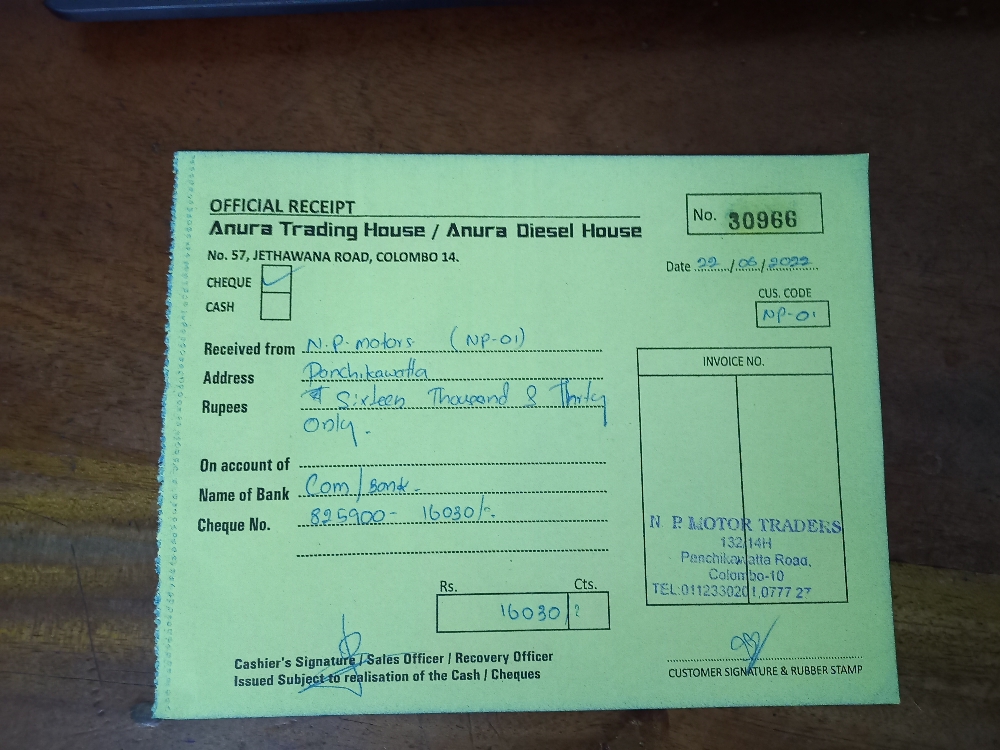 OFFICIAL RECEIPT
No. 30966
Anura Trading House / Anura Diesel House
No. 57, JETHAWANA ROAD, COLOMBO 14.
Date 22/06/2022
CHEQUE
CASH
CUS. CODE
NP-01
Received from N.P. motors (NP-01)
Address Panchikawatta
Rupees Sixteen Thousand & Thirty
Only.
INVOICE NO.
On account of
Name of Bank Com/Bank-
Cheque No. 825900- 16030/-
N P. MOTOR TRADERS
132/14H
Panchikawatta Road,
Colombo-10
TEL:0112330201,0777 27
Rs. Cts.
16030
Cashier's Signature / Sales Officer / Recovery Officer
Issued Subject to realisation of the Cash / Cheques
CUSTOMER SIGNATURE & RUBBER STAMP